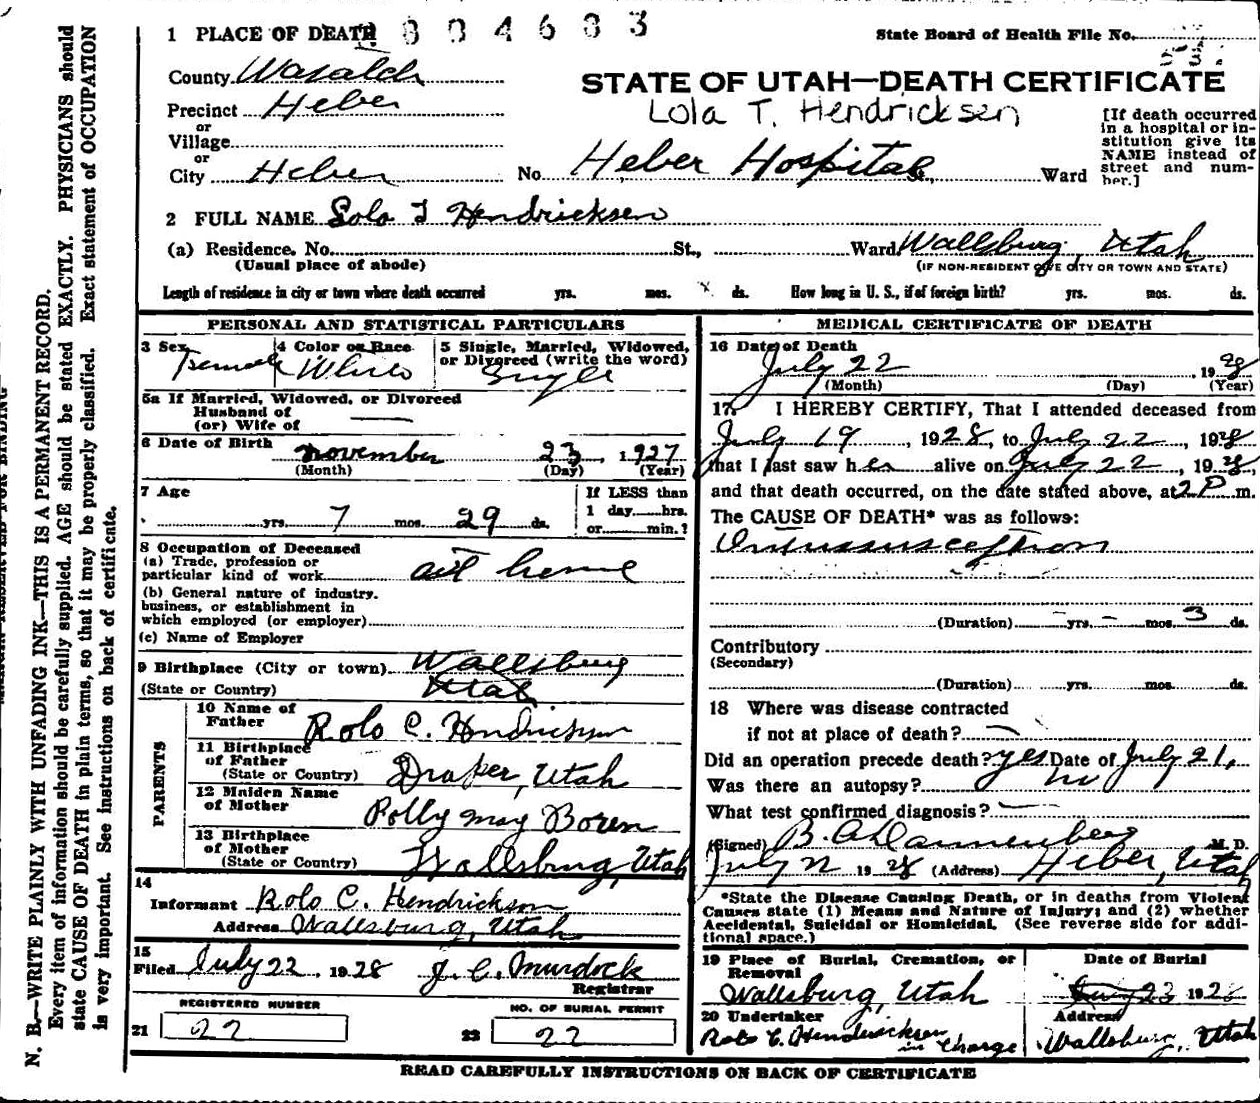 1 PLACE OF DEATH
8 0 4 6 8 3
State Board of Health File No.
County Wasatch
STATE OF UTAH—DEATH CERTIFICATE
Precinct Heber
Lola T. Hendricksen
or
Village
or
City Heber No Heber Hospital, Ward
[If death occurred
in a hospital or in-
stitution give its
NAME instead of
street and num-
ber.]
2 FULL NAME Lola T Hendricksen
(a) Residence. No. St., Ward Wallsburg, Utah
(Usual place of abode) (IF NON-RESIDENT GIVE CITY OR TOWN AND STATE)
Length of residence in city or town where death occurred yrs. mos. ds. How long in U. S., if of foreign birth? yrs. mos. ds.
PERSONAL AND STATISTICAL PARTICULARS
3 Sex Female
4 Color or Race White
5 Single, Married, Widowed,
or Divorced (write the word)
Single
5a If Married, Widowed, or Divorced
Husband of
(or) Wife of
6 Date of Birth November 23, 1927
(Month) (Day) (Year)
7 Age
yrs. 7 mos. 29 ds.
If LESS than
1 day hrs.
or min.?
8 Occupation of Deceased
(a) Trade, profession or
particular kind of work at home
(b) General nature of industry,
business, or establishment in
which employed (or employer)
(c) Name of Employer
9 Birthplace (City or town) Wallsburg
(State or Country) Utah
PARENTS
10 Name of
Father Rolo C. Hendricksen
11 Birthplace
of Father
(State or Country) Draper, Utah
12 Maiden Name
of Mother Polly May Boren
13 Birthplace
of Mother
(State or Country) Wallsburg, Utah
14
Informant Rolo C. Hendrickson
Address Wallsburg, Utah
15
Filed July 22, 1928 J. C. Murdock
Registrar
REGISTERED NUMBER NO. OF BURIAL PERMIT
21 22 22 22
MEDICAL CERTIFICATE OF DEATH
16 Date of Death
July 22, 1928
(Month) (Day) (Year)
17. I HEREBY CERTIFY, That I attended deceased from
July 19, 1928, to July 22, 1928
that I last saw her alive on July 22, 1928,
and that death occurred, on the date stated above, at 2 P m.
The CAUSE OF DEATH* was as follows:
Intussusception
(Duration) - yrs. - mos. 3 ds.
Contributory
(Secondary)
(Duration) yrs. mos. ds.
18 Where was disease contracted
if not at place of death?
Did an operation precede death? yes Date of July 21,
Was there an autopsy? no
What test confirmed diagnosis?
(Signed) M. D.
July 22 1928 (Address) Heber, Utah
*State the Disease Causing Death, or in deaths from Violent
Causes state (1) Means and Nature of Injury; and (2) whether
Accidental, Suicidal or Homicidal. (See reverse side for addi-
tional space.)
19 Place of Burial, Cremation, or
Removal
Wallsburg, Utah
Date of Burial
23 1928
20 Undertaker
Rolo C. Hendricksen
in charge
Address
Wallsburg, Utah
READ CAREFULLY INSTRUCTIONS ON BACK OF CERTIFICATE
N. B.—WRITE PLAINLY WITH UNFADING INK—THIS IS A PERMANENT RECORD.
Every item of information should be carefully supplied. AGE should be stated EXACTLY. PHYSICIANS should
state CAUSE OF DEATH in plain terms, so that it may be properly classified. Exact statement of OCCUPATION
is very important. See instructions on back of certificate.